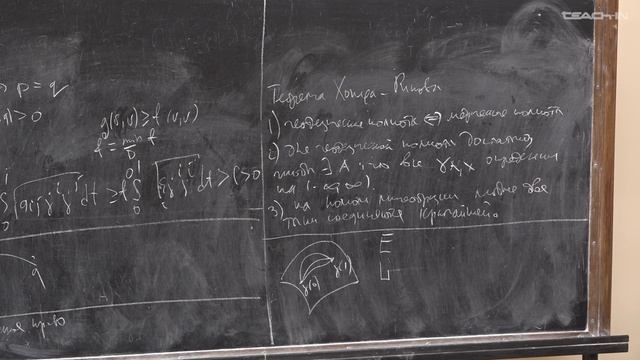 teach-in
⇒ p = q
) > 0
g(v,v) ≥ f (v,v)
f = min f
∫ √gij γ̇i γ̇j dt ≥ f ∫ √ γ̇i γ̇j dt > C > 0
0
q
Теорема Хопфа - Ринова
1) геодезическая полнота ⇔ метрическая полнота
2) Для геодезической полноты достаточно
чтобы ∃ A, что все γA,x определены
на (-∞, ∞).
3) на полном многообразии любые две
точки соединяются кратчайшей.
γ(0) γ(1)